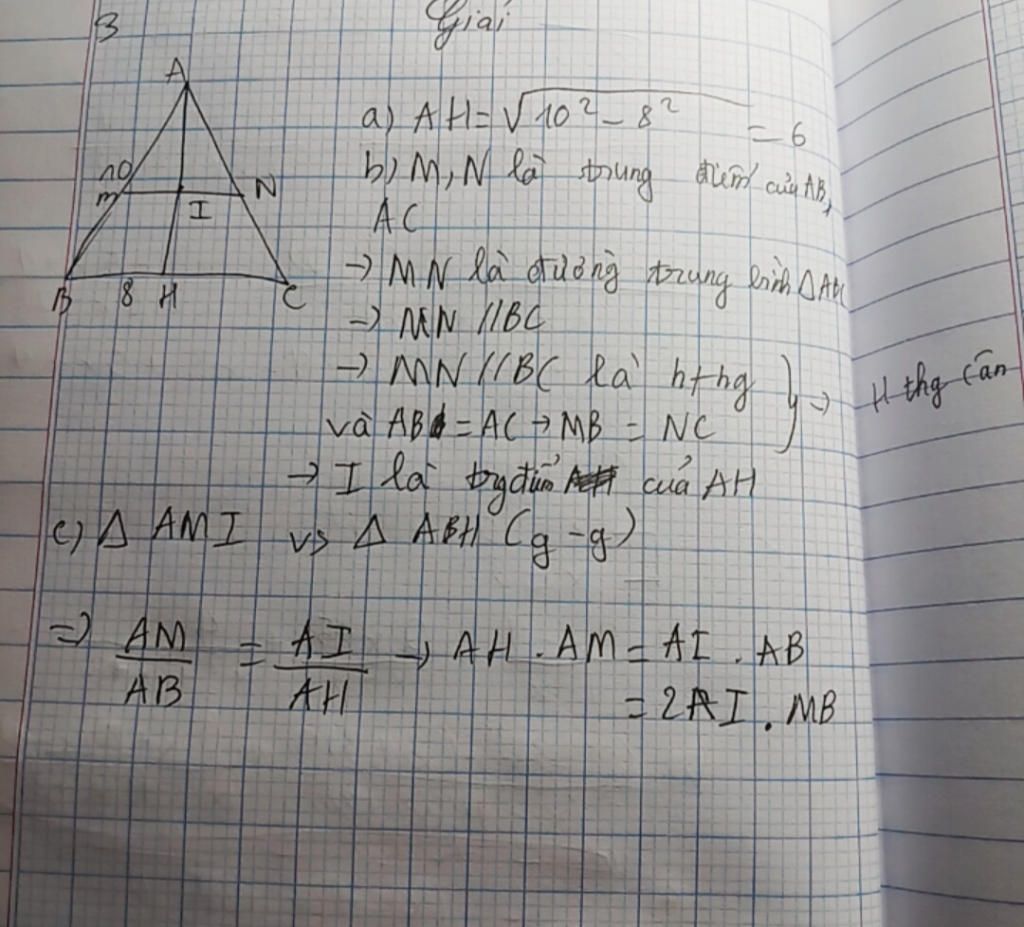 3
Giải
A
10
M
N
I
B 8 H C
a) AH = √10² - 8² = 6
b) M, N là trung điểm của AB,
AC
→ MN là đường trung bình Δ ABC
→ MN // BC
→ MN // BC là hthg
và AB = AC → MB = NC } → H thg cân
→ I là trg điểm của AH
c) Δ AMI vs Δ ABH (g-g)
=> AM/AB = AI/AH → AH . AM = AI . AB
= 2AI . MB